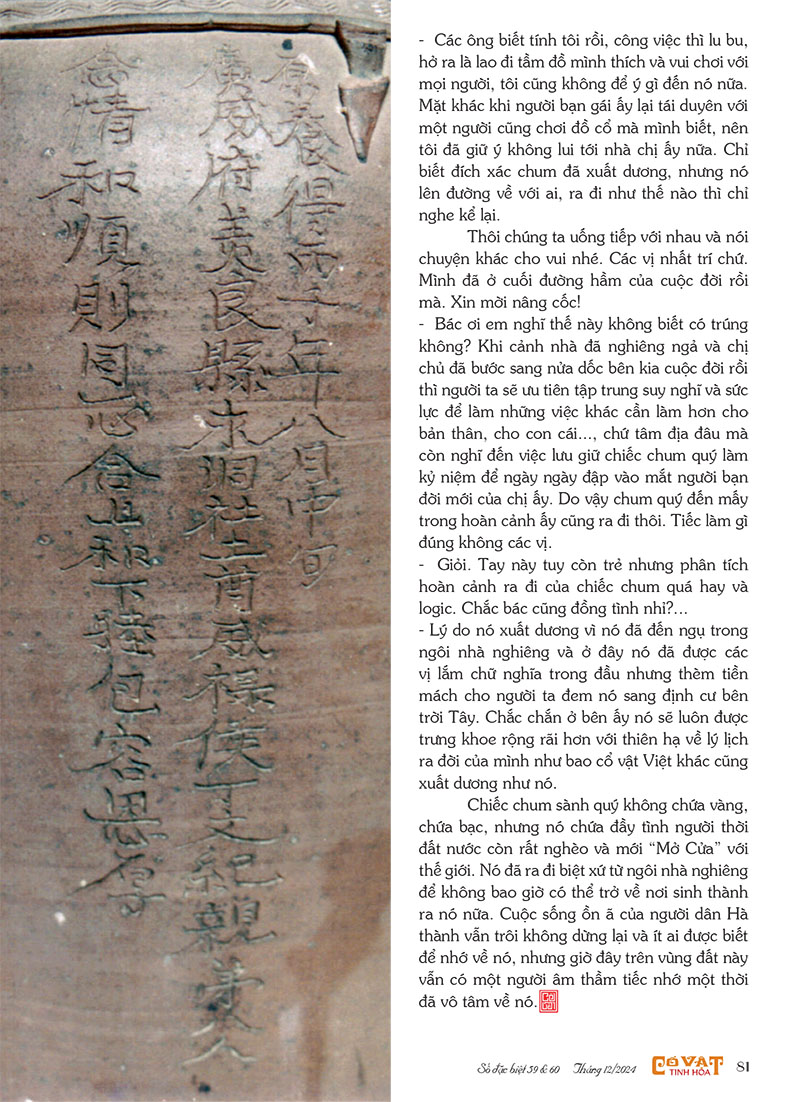 養得丙子年八月中旬
廣威府美良縣洞社土酋威祿侯丁文紀親弟人
念情和順則同心合上和下睦包容恩厚
- Các ông biết tính tôi rồi, công việc thì lu bu,
hở ra là lao đi tầm đồ mình thích và vui chơi với
mọi người, tôi cũng không để ý gì đến nó nữa.
Mặt khác khi người bạn gái ấy lại tái duyên với
một người cũng chơi đồ cổ mà mình biết, nên
tôi đã giữ ý không lui tới nhà chị ấy nữa. Chỉ
biết đích xác chum đã xuất dương, nhưng nó
lên đường về với ai, ra đi như thế nào thì chỉ
nghe kể lại.
Thôi chúng ta uống tiếp với nhau và nói
chuyện khác cho vui nhé. Các vị nhất trí chứ.
Mình đã ở cuối đường hầm của cuộc đời rồi
mà. Xin mời nâng cốc!
- Bác ơi em nghĩ thế này không biết có trúng
không? Khi cảnh nhà đã nghiêng ngả và chị
chủ đã bước sang nửa dốc bên kia cuộc đời rồi
thì người ta sẽ ưu tiên tập trung suy nghĩ và sức
lực để làm những việc khác cần làm hơn cho
bản thân, cho con cái..., chứ tâm địa đâu mà
còn nghĩ đến việc lưu giữ chiếc chum quý làm
kỷ niệm để ngày ngày đập vào mắt người bạn
đời mới của chị ấy. Do vậy chum quý đến mấy
trong hoàn cảnh ấy cũng ra đi thôi. Tiếc làm gì
đúng không các vị.
- Giỏi. Tay này tuy còn trẻ nhưng phân tích
hoàn cảnh ra đi của chiếc chum quá hay và
logic. Chắc bác cũng đồng tình nhỉ?...
- Lý do nó xuất dương vì nó đã đến ngụ trong
ngôi nhà nghiêng và ở đây nó đã được các
vị lắm chữ nghĩa trong đầu nhưng thèm tiền
mách cho người ta đem nó sang định cư bên
trời Tây. Chắc chắn ở bên ấy nó sẽ luôn được
trưng khoe rộng rãi hơn với thiên hạ về lý lịch
ra đời của mình như bao cổ vật Việt khác cũng
xuất dương như nó.
Chiếc chum sành quý không chứa vàng,
chứa bạc, nhưng nó chứa đầy tình người thời
đất nước còn rất nghèo và mới “Mở Cửa” với
thế giới. Nó đã ra đi biệt xứ từ ngôi nhà nghiêng
để không bao giờ có thể trở về nơi sinh thành
ra nó nữa. Cuộc sống ồn ã của người dân Hà
thành vẫn trôi không dừng lại và ít ai được biết
để nhớ về nó, nhưng giờ đây trên vùng đất này
vẫn có một người âm thầm tiếc nhớ một thời
đã vô tâm về nó.
Số đặc biệt 59 & 60 Tháng 12/2024 CổVẬT TINH HOA 81